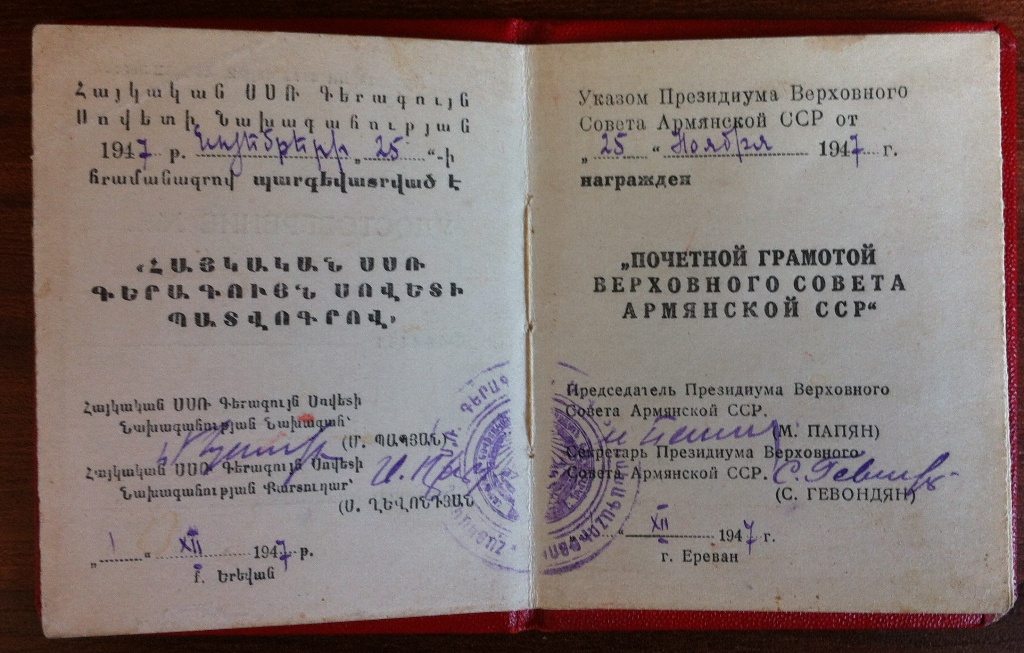 Հայկական ՍՍՌ Գերագույն
Սովետի Նախագահության
1947 թ. նոյեմբերի „ 25 “-ի
հրամանագրով պարգեվատրված է
«ՀԱՅԿԱԿԱՆ ՍՍՌ
ԳԵՐԱԳՈՒՅՆ ՍՈՎԵՏԻ
ՊԱՏՎՈԳՐՈՎ»
Հայկական ՍՍՌ Գերագույն Սովետի
Նախագահության Նախագահ՝
(Մ. ՊԱՊՅԱՆ)
Հայկական ՍՍՌ Գերագույն Սովետի
Նախագահության Քարտուղար՝
(Ս. ՂԵՎՈՆԴՅԱՆ
„ 1 “ XII 1947 թ.
ք. Երեվան
Указом Президиума Верховного
Совета Армянской ССР от
„ 25 “ Ноября 1947 г.
награжден
„ПОЧЕТНОЙ ГРАМОТОЙ
ВЕРХОВНОГО СОВЕТА
АРМЯНСКОЙ ССР“
Председатель Президиума Верховного
Совета Армянской ССР.
(М. ПАПЯН)
Секретарь Президиума Верховного
Совета Армянской ССР.
(С. ГЕВОНДЯН)
“ XII 1947 г.
г. Ереван